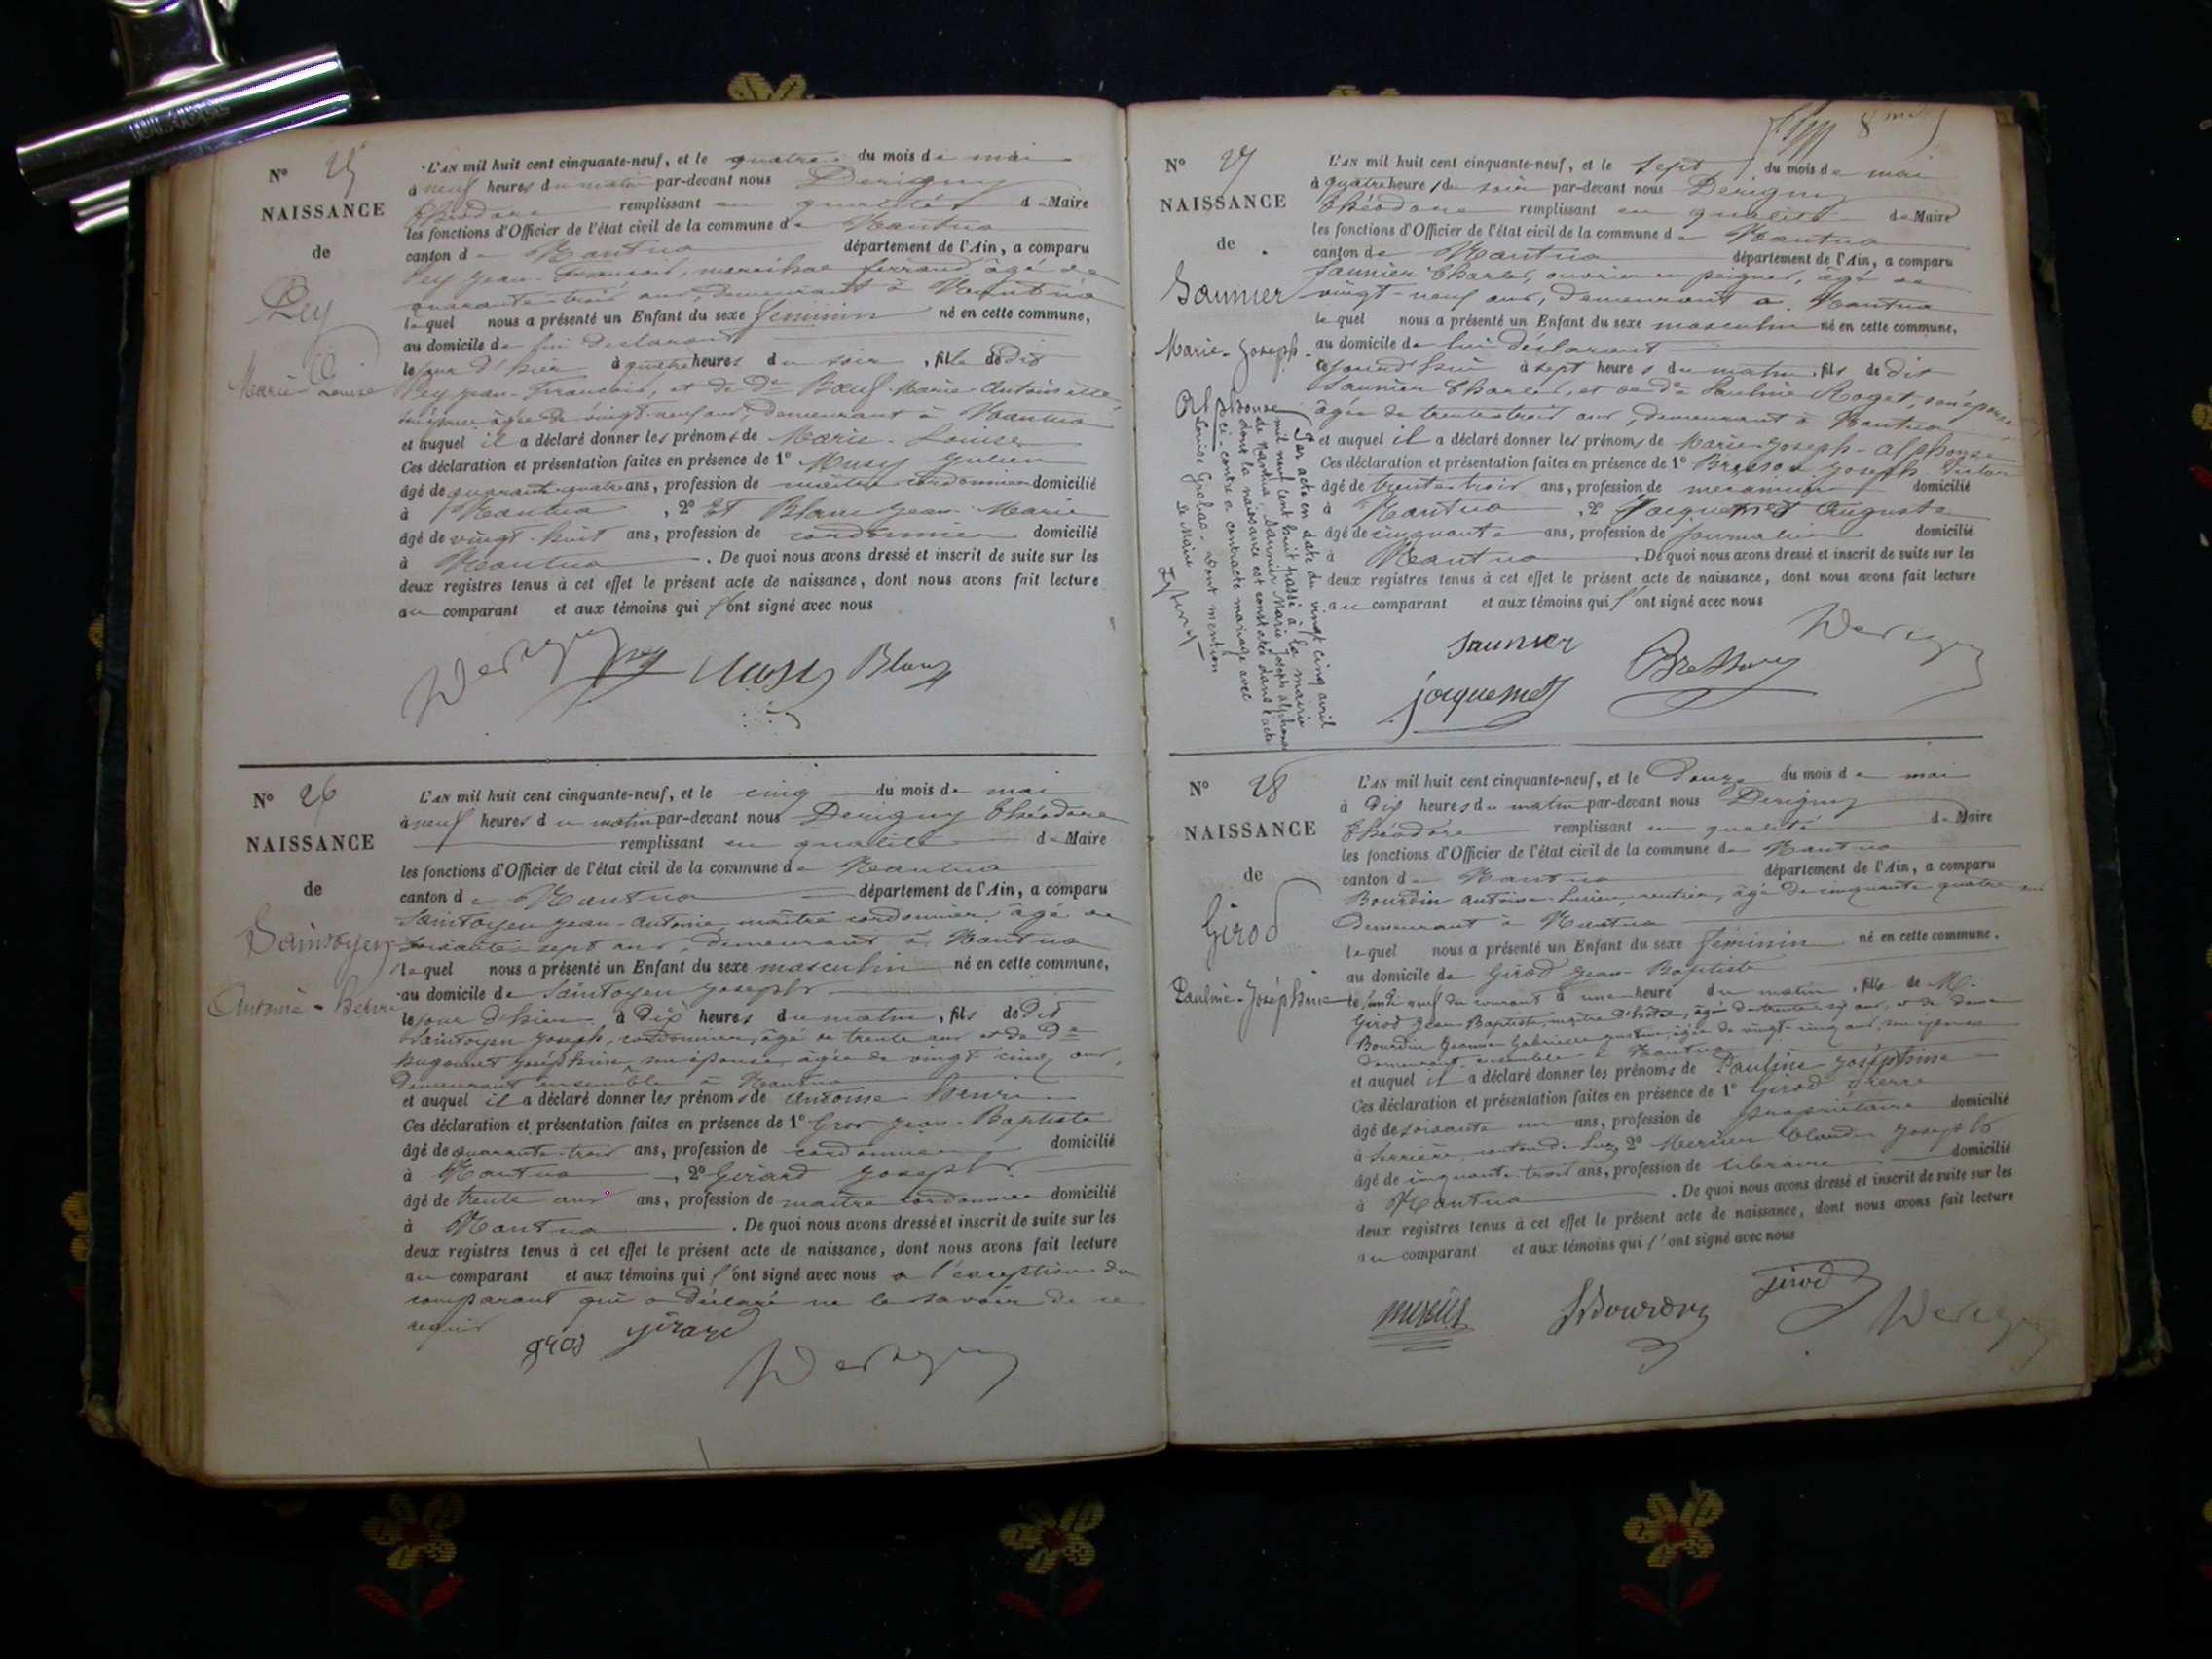 N° 25
NAISSANCE
de
Pey
Marie Louise
L'AN mil huit cent cinquante-neuf, et le quatre du mois de mai
à neuf heures du matin par-devant nous Derigny
Théodore remplissant en qualité de Maire
les fonctions d'Officier de l'état civil de la commune de Nantua
canton de Nantua département de l'Ain, a comparu
Pey Jean François, maréchal ferrand âgé de
quarante-trois ans, demeurant à Nantua
lequel nous a présenté un Enfant du sexe féminin né en cette commune,
au domicile de lui déclarant
le jour d'hier à quatre heures du soir, fille de dit
Pey Jean-François, et de De Bœuf Marie Antoinette,
son épouse âgée de vingt-neuf ans, demeurant à Nantua
et auquel il a déclaré donner les prénoms de Marie-Louise
Ces déclaration et présentation faites en présence de 1° Musy Julien
âgé de quarante quatre ans, profession de maître cordonnier domicilié
à Nantua, 2° Et Blanc Jean Marie
âgé de vingt-huit ans, profession de cordonnier domicilié
à Nantua. De quoi nous avons dressé et inscrit de suite sur les
deux registres tenus à cet effet le présent acte de naissance, dont nous avons fait lecture
au comparant et aux témoins qui l'ont signé avec nous
Derigny Pey Musy Blanc
N° 26
NAISSANCE
de
Saintoyen
Antoine-Henri
L'AN mil huit cent cinquante-neuf, et le cinq du mois de mai
à neuf heures du matin par-devant nous Derigny Théodore
remplissant en qualité de Maire
les fonctions d'Officier de l'état civil de la commune de Nantua
canton de Nantua département de l'Ain, a comparu
Saintoyen Jean-Antoine maître cordonnier âgé de
soixante sept ans, demeurant à Nantua
lequel nous a présenté un Enfant du sexe masculin né en cette commune,
au domicile de Saintoyen Joseph
le jour d'hier à dix heures du matin, fils de dit
Saintoyen Joseph, cordonnier, âgé de trente ans et de De
Hugonnet Joséphine, son épouse, âgée de vingt cinq ans,
demeurant ensemble à Nantua
et auquel il a déclaré donner les prénoms de Antoine Henri
Ces déclaration et présentation faites en présence de 1° Gros Jean-Baptiste
âgé de quarante-trois ans, profession de cordonnier domicilié
à Nantua, 2° Girard Joseph
âgé de trente ans ans, profession de maître cordonnier domicilié
à Nantua. De quoi nous avons dressé et inscrit de suite sur les
deux registres tenus à cet effet le présent acte de naissance, dont nous avons fait lecture
au comparant et aux témoins qui l'ont signé avec nous à l'exception du
comparant qui a déclaré ne le savoir de ce
requis
gros girard
Derigny
8
N° 27
NAISSANCE
de
Saunier
Marie-Joseph-
Alphonse
L'AN mil huit cent cinquante-neuf, et le sept du mois de mai
à quatre heures du soir par-devant nous Derigny
Théodore remplissant en qualité de Maire
les fonctions d'Officier de l'état civil de la commune de Nantua
canton de Nantua département de l'Ain, a comparu
Saunier Charles, ouvrier en peignes, âgé de
vingt-neuf ans, demeurant à Nantua
lequel nous a présenté un Enfant du sexe masculin né en cette commune,
au domicile de lui déclarant
cejourd'hui à sept heures du matin, fils de dit
Saunier Charles, et de De Pauline Roget, son épouse
âgée de trente trois ans, demeurant à Nantua
et auquel il a déclaré donner les prénoms de Marie-Joseph-Alphonse
Ces déclaration et présentation faites en présence de 1° Bresson Joseph
âgé de trente-trois ans, profession de mécanicien domicilié
à Nantua, 2° Jacquemet Auguste
âgé de cinquante ans, profession de journalier domicilié
à Nantua. De quoi nous avons dressé et inscrit de suite sur les
deux registres tenus à cet effet le présent acte de naissance, dont nous avons fait lecture
au comparant et aux témoins qui l'ont signé avec nous
Saunier Bresson Derigny
jacquemet
Par acte en date du vingt cinq avril
mil neuf cent huit passé à la mairie
de Nantua, Saunier Marie Joseph Alphonse
dont la naissance est constatée dans l'acte
ci-contre a contracté mariage avec
Louise dont mention
Le Maire
N° 28
NAISSANCE
de
Girod
Pauline-Joséphine
L'AN mil huit cent cinquante-neuf, et le douze du mois de mai
à dix heures du matin par-devant nous Derigny
Théodore remplissant en qualité de Maire
les fonctions d'Officier de l'état civil de la commune de Nantua
canton de Nantua département de l'Ain, a comparu
Bourdin Antoine Lucien, rentier, âgé de cinquante quatre ans
demeurant à Nantua
lequel nous a présenté un Enfant du sexe féminin né en cette commune,
au domicile de Girod Jean-Baptiste
le lundi neuf du courant à une heure du matin, fille de M.
Girod Jean Baptiste, maître d'hôtel, âgé de trente six ans, et de dame
Bourdin Jeanne Gabrielle âgée de vingt cinq ans, son épouse
demeurant ensemble à Nantua
et auquel il a déclaré donner les prénoms de Pauline Joséphine
Ces déclaration et présentation faites en présence de 1° Girod Pierre
âgé de soixante un ans, profession de propriétaire domicilié
à Serrières, canton de 2° Mercier Claude Joseph
âgé de cinquante-trois ans, profession de libraire domicilié
à Nantua. De quoi nous avons dressé et inscrit de suite sur les
deux registres tenus à cet effet le présent acte de naissance, dont nous avons fait lecture
au comparant et aux témoins qui l'ont signé avec nous
mercier Bourdin Girod Derigny